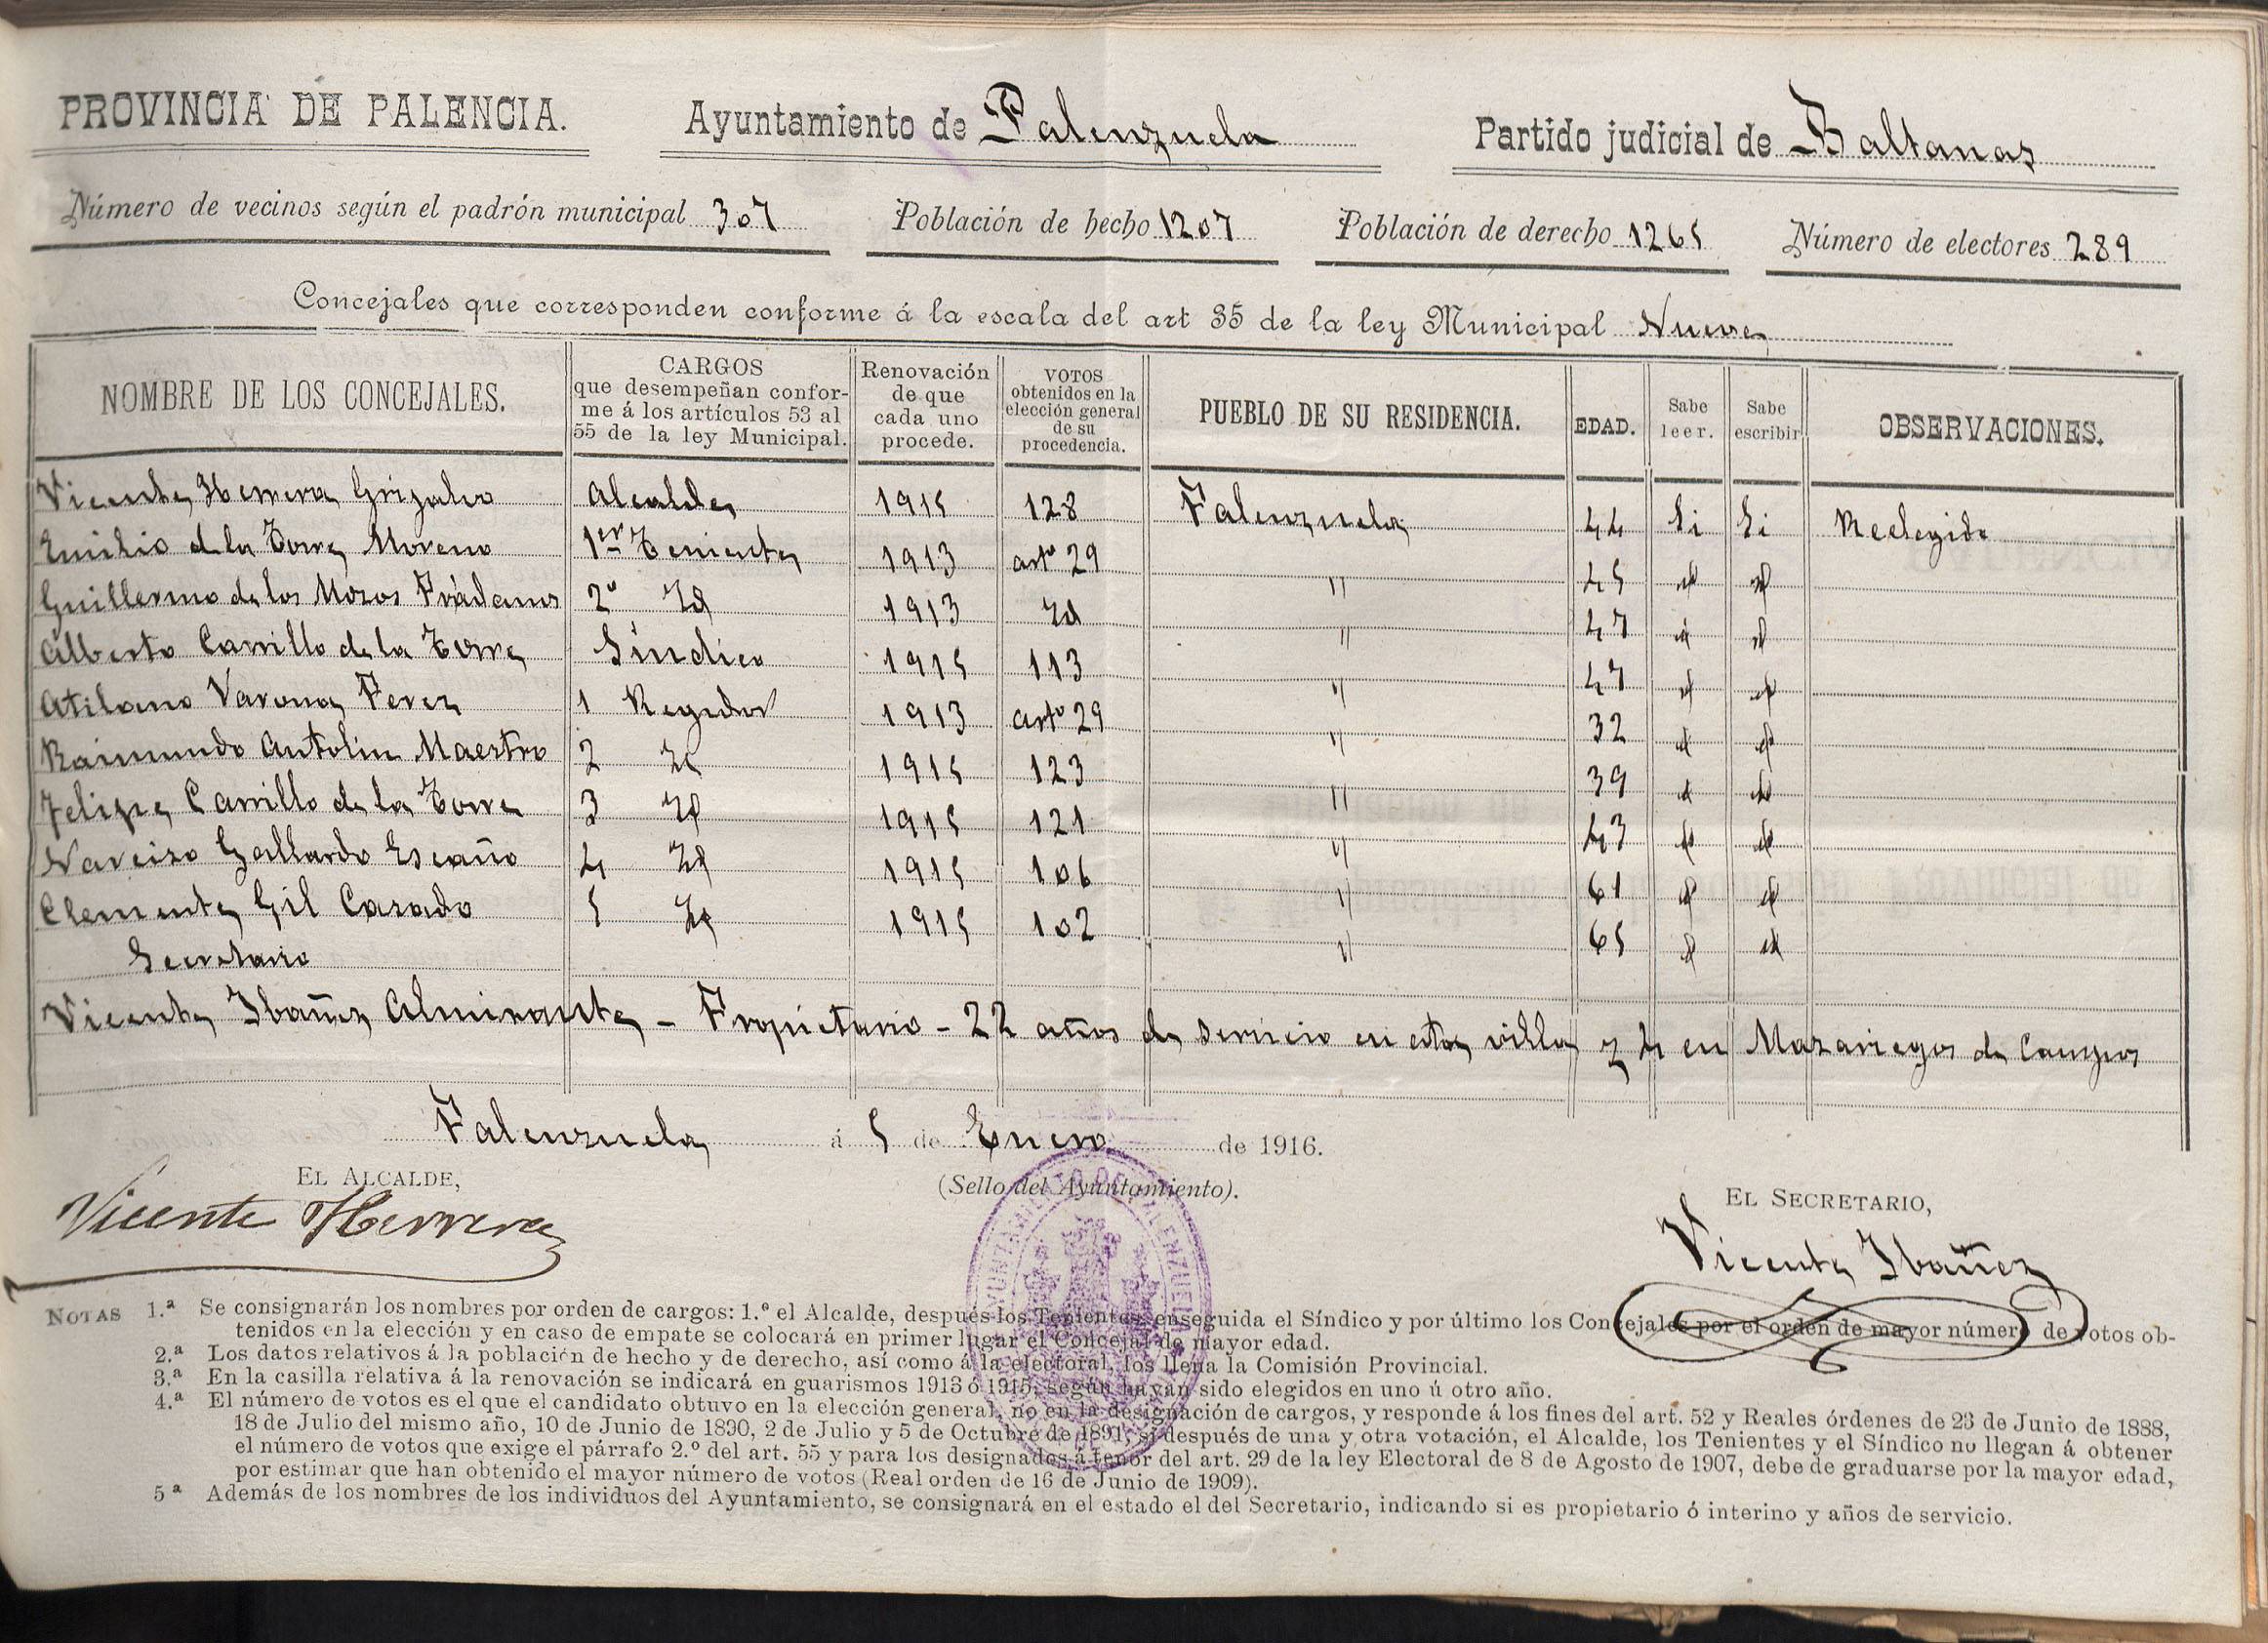 PROVINCIA DE PALENCIA. Ayuntamiento de Palenzuela Partido judicial de Baltanas
Número de vecinos según el padrón municipal 307 Población de hecho 1207 Población de derecho 1265 Número de electores 289
Concejales que corresponden conforme á la escala del art 35 de la ley Municipal Nueve
NOMBRE DE LOS CONCEJALES. CARGOS que desempeñan confor-me á los artículos 53 al 55 de la ley Municipal. Renovación de que cada uno procede. VOTOS obtenidos en la elección general de su procedencia. PUEBLO DE SU RESIDENCIA. EDAD. Sabe leer. Sabe escribir OBSERVACIONES.
Vicente Herrera Grijalvo Alcalde 1915 128 Palenzuela 44 Si Si Reelegido
Emilio de la Torre Moreno 1er Teniente 1913 arto 29 " 45 id id
Guillermo de los Mozos Prádanos 2º Id 1913 Id " 47 id id
Alberto Carrillo de la Torre Síndico 1915 113 " 47 id id
Atilano Varona Perez 1 Regidor 1913 arto 29 " 32 id id
Raimundo Antolin Maestro 2 Id 1915 123 " 39 id id
Felipe Carrillo de la Torre 3 Id 1915 121 " 43 id id
Narciso Gallardo Escaño 4 Id 1915 106 " 61 id id
Clemente Gil Casado 5 Id 1915 102 " 65 id id
Secretario
Vicente Ibañez Almirante - Propietario - 22 años de servicio en esta villa y 4 en Mazariegos de Campos
Palenzuela á 5 de Enero de 1916.
EL ALCALDE, (Sello del Ayuntamiento). EL SECRETARIO,
Vicente Herrera Vicente Ibañez
AYUNTAMIENTO DE PALENZUELA
NOTAS 1.ª Se consignarán los nombres por orden de cargos: 1.º el Alcalde, después los Tenientes, enseguida el Síndico y por último los Concejales por el orden de mayor número de votos ob-
tenidos en la elección y en caso de empate se colocará en primer lugar el Concejal de mayor edad.
2.ª Los datos relativos á la población de hecho y de derecho, así como á la electoral, los llena la Comisión Provincial.
3.ª En la casilla relativa á la renovación se indicará en guarismos 1913 ó 1915, según hayan sido elegidos en uno ú otro año.
4.ª El número de votos es el que el candidato obtuvo en la elección general, no en la designación de cargos, y responde á los fines del art. 52 y Reales órdenes de 23 de Junio de 1888,
18 de Julio del mismo año, 10 de Junio de 1890, 2 de Julio y 5 de Octubre de 1891; si después de una y otra votación, el Alcalde, los Tenientes y el Síndico no llegan á obtener
el número de votos que exige el párrafo 2.º del art. 55 y para los designados á tenor del art. 29 de la ley Electoral de 8 de Agosto de 1907, debe de graduarse por la mayor edad,
por estimar que han obtenido el mayor número de votos (Real orden de 16 de Junio de 1909).
5ª Además de los nombres de los individuos del Ayuntamiento, se consignará en el estado el del Secretario, indicando si es propietario ó interino y años de servicio.